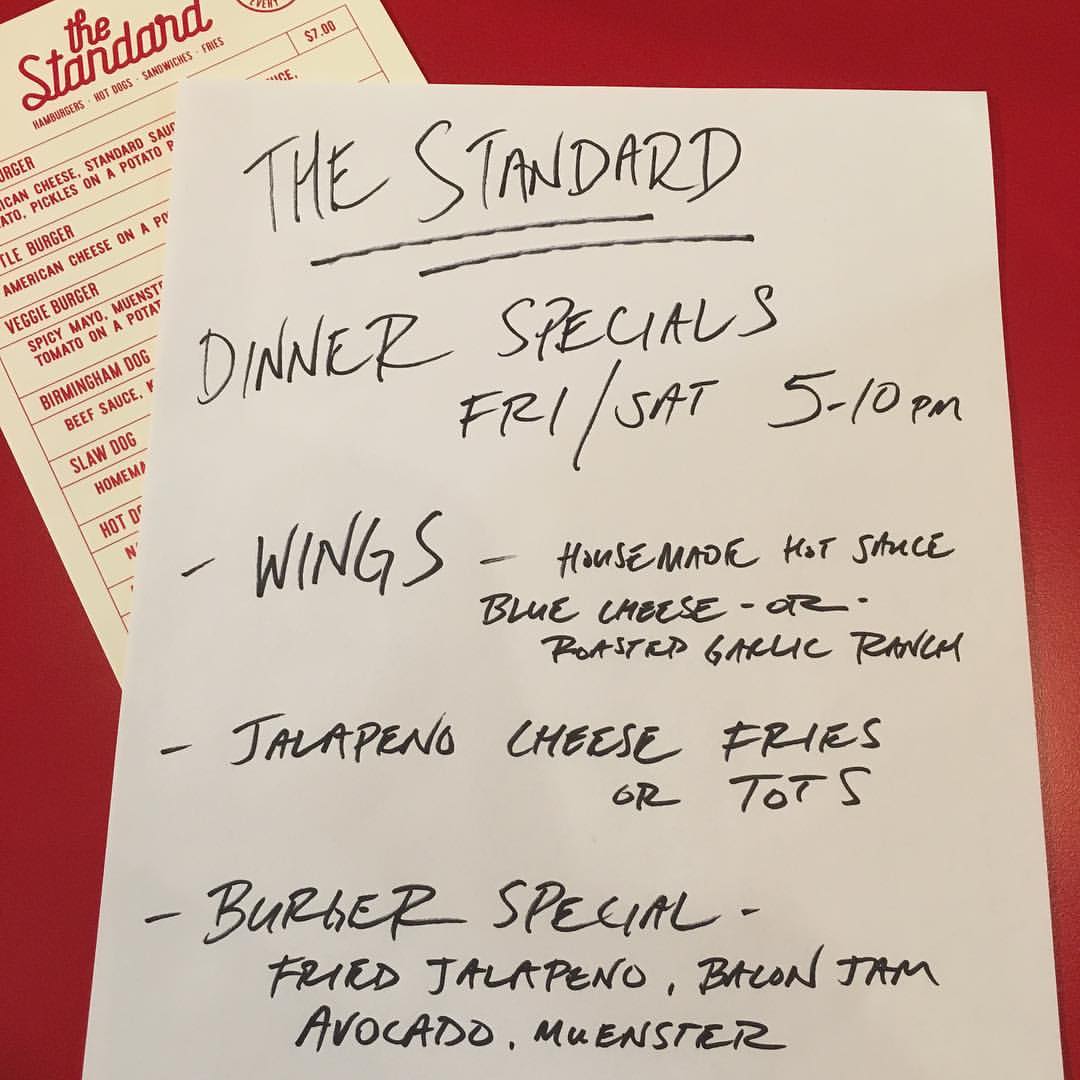 the
Standard
HAMBURGERS · HOT DOGS · SANDWICHES · FRIES
EVERY
$7.00
AMERICAN CHEESE, STANDARD
PICKLES ON A POTATO
BURGER
AMERICAN CHEESE ON A
VEGGIE BURGER
SPICY MAYO,
TOMATO ON A
BIRMINGHAM DOG
BEEF SAUCE,
SLAW DOG
HOT
THE STANDARD
DINNER SPECIALS
FRI/SAT 5-10 PM
- WINGS - HOUSEMADE HOT SAUCE
BLUE CHEESE - OR -
ROASTED GARLIC RANCH
- JALAPENO CHEESE FRIES
OR TOTS
- BURGER SPECIAL -
FRIED JALAPENO, BACON JAM
AVOCADO, MUENSTER